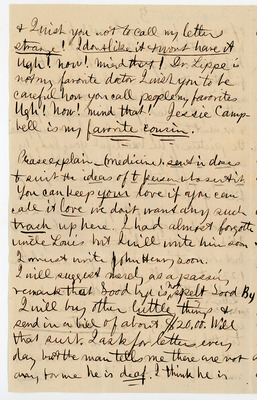 & I wish you not to call my letter
strange! I don't like it & wont have it
Ugh! Now! mind that! Dr. Lippe is
not my favorite doctor I wish you to be
careful how you call people my favorites
Ugh! Now! mind that! Jessie Camp-
bell is my favorite cousin.
Please explain - (medicine) sent in doses
to suit the ideas of t person who sent it.
You can keep your love if you can
call it love we don't want any such
trash up here. I had almost forgotten
uncle Louis but I will write him soon
I must write John Henry soon.
I will suggest merely as a passing
remark that Good bye is not spelt Good By
I will buy other little things &
send in a bill of about $20.00. Will
that suit. I ask for letters every
day but the man tells me there are not
any for me he is deaf. I think he is